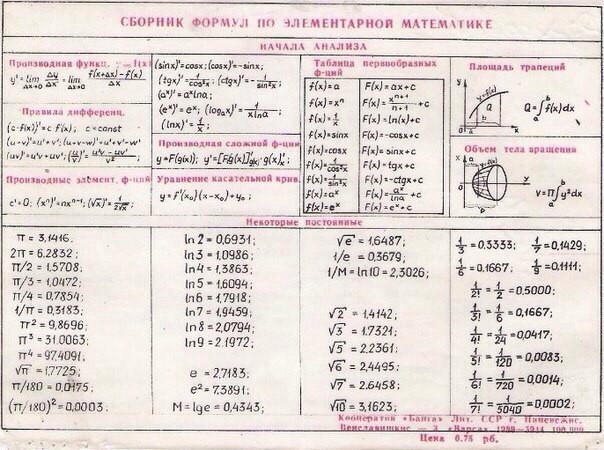 СБОРНИК ФОРМУЛ ПО ЭЛЕМЕНТАРНОЙ МАТЕМАТИКЕ
НАЧАЛА АНАЛИЗА
Производная функц. y=f(x)
y'= lim Δx→0 Δy/Δx = lim Δx→0 (f(x+Δx)-f(x))/Δx
Правила дифференц.
(c·f(x))'=c f'(x); c=const
(u-v)'=u'+v'; (u+v-w)'=u'+v'-w'
(uv)'=u'v+uv'; (u/v)'=(u'v-uv')/v²
Производные элемент. ф-ций
c'=0; (xⁿ)'=nxⁿ⁻¹; (√x)'=1/(2√x)
(sinx)'=cosx; (cosx)'=-sinx;
(tgx)'=1/cos²x; (ctgx)'=-1/sin²x;
(aˣ)'=aˣlna;
(eˣ)'=eˣ; (logₐx)'=1/(x lna);
(lnx)'=1/x;
Производная сложной ф-ции
y=F(g(x)); y'=[F(g(x))]'g(x)·g(x)'x;
Уравнение касательной крив.
y=f'(x₀)(x-x₀)+y₀;
Таблица первообразных
ф-ций
f(x)=a F(x)=ax+c
f(x)=xⁿ F(x)=xⁿ⁺¹/(n+1)+c
f(x)=1/x F(x)=ln(x)+c
f(x)=sinx F(x)=-cosx+c
f(x)=cosx F(x)=sinx+c
f(x)=1/cos²x F(x)=tgx+c
f(x)=1/sin²x F(x)=-ctgx+c
f(x)=aˣ F(x)=aˣ/lna+c
f(x)=eˣ F(x)=eˣ+c
Площадь трапеций
y
y=f(x)
Q
a b x
Q=∫ₐᵇf(x)dx
Объем тела вращения
y
y=f(x)
V=Π∫ₐᵇy²dx
Некоторые постоянные
π = 3,1416.
2π = 6.2832;
π/2 = 1,5708;
π/3 = 1,0472;
π/4 = 0,7854;
1/π = 0,3183;
π² = 9,8696;
π³ = 31.0063;
π⁴ = 97.4091;
√π = 1,7725;
π/180 = 0,0175;
(π/180)² = 0,0003;
ln 2 = 0,6931;
ln 3 = 1,0986;
ln 4 = 1,3863;
ln 5 = 1,6094;
ln 6 = 1,7918;
ln 7 = 1,9459;
ln 8 = 2,0794;
ln 9 = 2.1972;
e = 2,7183;
e² = 7.3891;
M = lg e = 0,4343;
√e = 1,6487;
1/e = 0,3679;
1/M = ln10 = 2,3026;
√2 = 1,4142;
√3 = 1.7321;
√5 = 2,2361;
√6 = 2,4495;
√7 = 2.6458;
√10 = 3,1623;
1/3 = 0.3333; 1/7 = 0,1429;
1/6 = 0.1667; 1/9 = 0.1111;
1/2! = 1/2 = 0,5000;
1/3! = 1/6 = 0,1667;
1/4! = 1/24 = 0,0417;
1/5! = 1/120 = 0,0083;
1/6! = 1/720 = 0,0014;
1/7! = 1/5040 = 0,0002;
Кооператив "Банга" Лит. ССР г. Паневежис.
1989 100 000
Цена 0.75 рб.